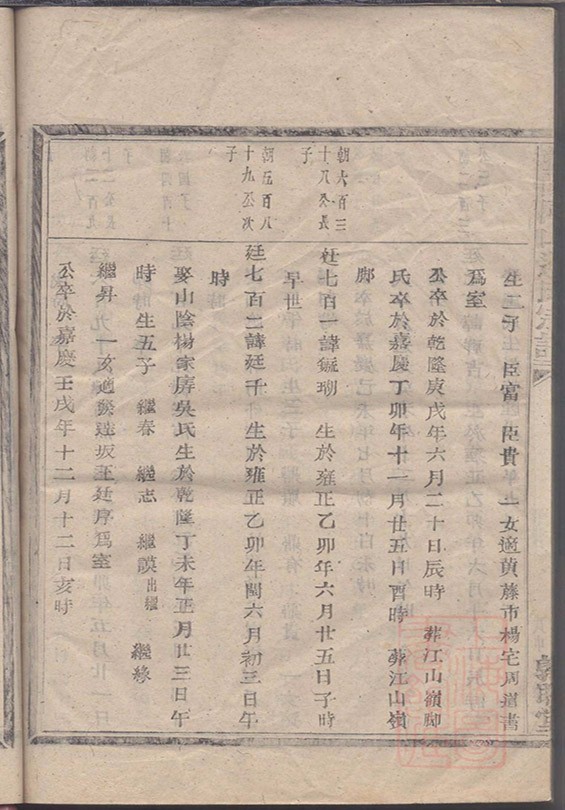 生二子 臣富 臣貴 一女適黃藤市楊宅周道書
爲室
公卒於乾隆庚戌年六月二十日辰時 葬江山嶺脚
氏卒於嘉慶丁卯年十一月廿五日酉時 葬江山嶺
脚
朝六百三
十八公長
子
廷七百一諱 生於雍正乙卯年六月廿五日子時
早世
朝五百八
十九公次
子
廷七百二諱廷千 生於雍正乙卯年閏六月初三日午
時
娶山陰楊家屏吳氏生於乾隆丁未年正月廿三日午
時 生五子 繼春 繼志 繼謨出繼 繼緣
繼昇 一女適 達坂王廷序爲室
公卒於嘉慶壬戌年十二月十二日亥時